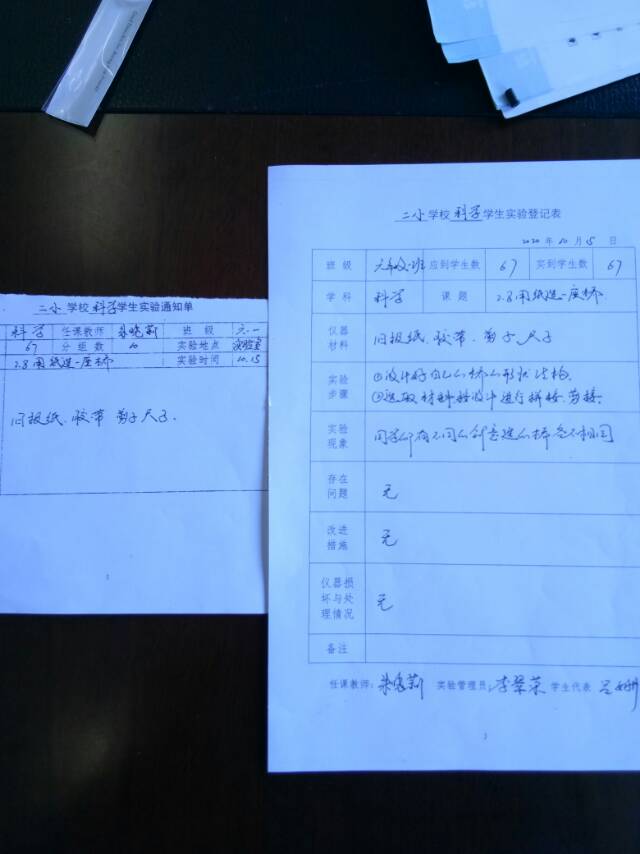 二小学校科学学生实验通知单
科学 任课教师 朱晓莉 班级 六.一
67 分组数 10 实验地点 实验室
2.8用纸造一座桥 实验时间 10.15
旧报纸.胶带 剪子尺子.
二小学校科学学生实验登记表
2020年10月15日
班级 应到学生数 67 实到学生数 67
学科 科学 课题 2.8用纸造一座桥.
仪器
材料
旧报纸.胶带.剪子、尺子
实验
步骤
①设计好自己的桥的形状结构.
②选取材料按设计进行拼接.剪接.
实验
现象
同学们有不同的创意造的桥各不相同
存在
问题
无
改进
措施
无
仪器损
坏与处
理情况
无
备注
任课教师:朱晓莉 实验管理员:李翠荣 学生代表